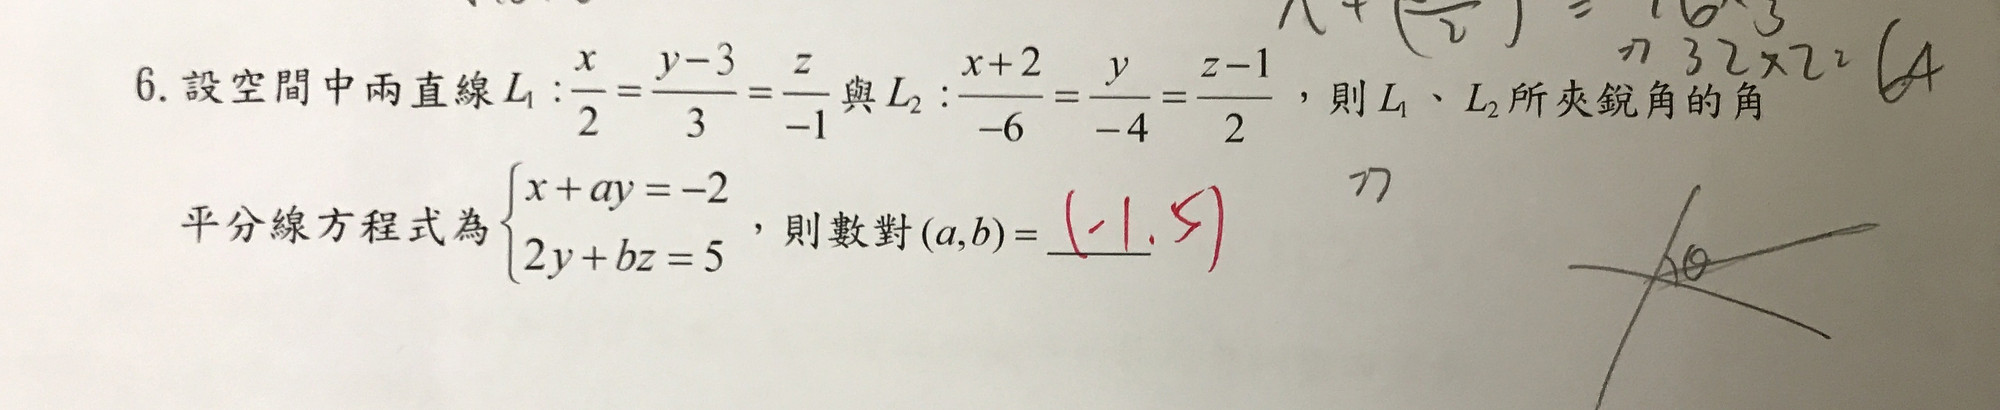 = 16×3
32×22 (4
6. 設空間中兩直線 L₁ : x/2 = (y−3)/3 = z/−1 與 L₂ : (x+2)/−6 = y/−4 = (z−1)/2 ,則 L₁、L₂ 所夾銳角的角
平分線方程式為 { x + ay = −2 , 2y + bz = 5 ,則數對 (a,b) = (-1.5)
θ